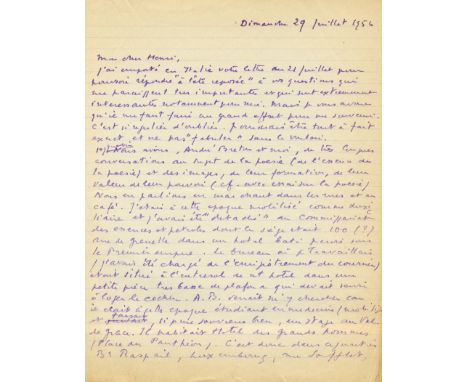 Dimanche 29 Juillet 1956
Mon cher Henri,
J'ai emporté en Italie votre lettre du 21 Juillet pour
pouvoir répondre "à tête reposée" à vos questions qui
me paraissent très importantes et qui sont extrêmement
intéressantes notamment pour moi. Mais je vous avoue
qu'il me faut faire un grand effort pour me souvenir.
C'est si facile d'oublier. Je voudrais être tout à fait
exact et ne pas "fabuler" sans le vouloir.
1°) Nous avons, André Breton et moi, de très longues
conversations au sujet de la poésie (de l'essence de
la poésie) et des images, de leur formation, de leur
valeur de leur pouvoir (cf. mes essais sur la poésie)
Nous en parlions en marchant dans les rues et au
café. J'étais à cette époque mobilisé comme auxi
liaire et j'avais été "détaché" au Commissariat
des essences et pétroles dont le siège était 100 (?)
rue de Grenelle dans un hotel bati je crois sous
le Premier empire. Le bureau où je travaillais
(j'avais été chargé de l'enregistrement du courrier)
était situé à l'entresol de cet hotel dans une
petite pièce très basse de plafond qui devait servir
à loger le cocher. A.B. venait m'y chercher car
il était à cette époque étudiant en médecine (mobilisé
et faisait si je me souviens bien, un stage au Val
de grace. Il habitait Hotel des grands hommes
(Place du Panthéon). C'est donc dans ce quartier
Bd Raspail, Luxembourg, rue Soufflot,